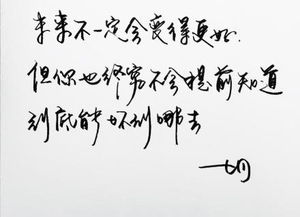 未来不一定会变得更好.
但你也终究不会提前知道
到底能坏到哪去